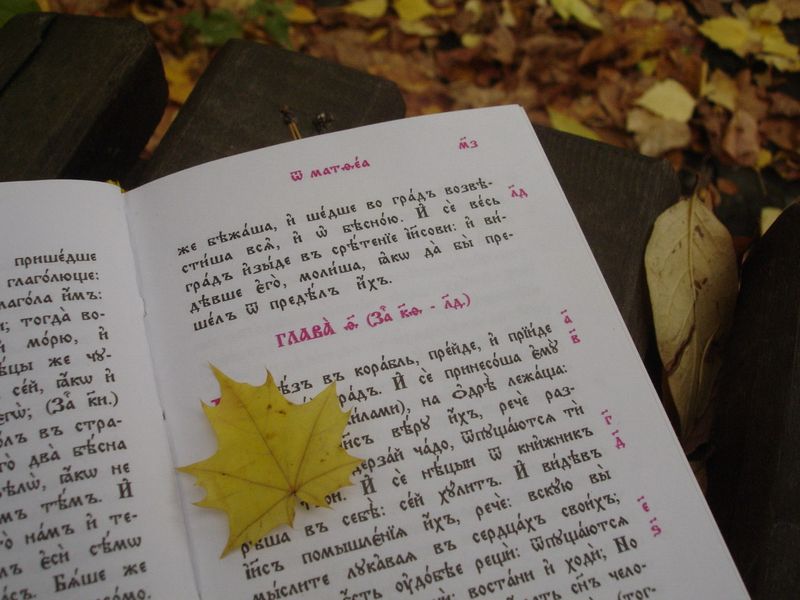 пришéдше
глагóлюще:
лагóла и҆̀мъ:
и; тогдà во-
мóрю, и҆
ѣцы же чу-
сéй, ꙗ҆́кѡ и҆
(За҄ к҃и.)
въ стра-
двà бѣсна
ꙗ҆́кѡ не
тѣ́мъ. И҆
нáмъ и҆ те-
є҆сѝ сѣ́мѡ
Бѧ́ше же
ѿ матѳе́а
м҃з
же бѣжáша, и҆ ше́дше во грáдъ возвѣ-
л҃д
сти́ша всѧ̑, и҆ ѡ҆ бѣснóю. И҆ се́ ве́сь
грáдъ и҆зы́де въ срѣ́тенїе і҆и҃сови: и҆ ви́-
дѣвше є҆гò, моли́ша, ꙗ҆́кѡ да̀ бы̀ пре-
ше́лъ ѿ предѣ̑лъ и҆́хъ.
ГЛАВА̀ ѳ҃. (За҄ к҃ѳ. - л҃д.)
а҃
въ корáбль, пре́йде, и҆ прїи́де
в҃
грáдъ. И҆ се́ принесóша є҆мꙋ̀
на ѻ҆дрѣ̀ лежáща:
вѣ́рꙋ и҆́хъ, речѐ раз-
дерзáй чáдо, ѿпꙋщáютсѧ тѝ
г҃
И҆ се́ нѣ́цыи ѿ кни́жникъ
д҃
рѣ́ша въ себѣ̀: се́й хꙋ́литъ. И҆ ви́дѣвъ
і҆и҃съ помышлє́нїѧ и҆́хъ, речѐ: вскꙋ́ю вы̀
мы́слите лꙋка́ваѧ въ сердцáхъ свои́хъ;
є҃
ѹ҆дóбѣе рещѝ: ѿпꙋщáютсѧ
ѕ҃
востáни и҆ ходѝ; Но
сн҃ъ чело-
(тог-